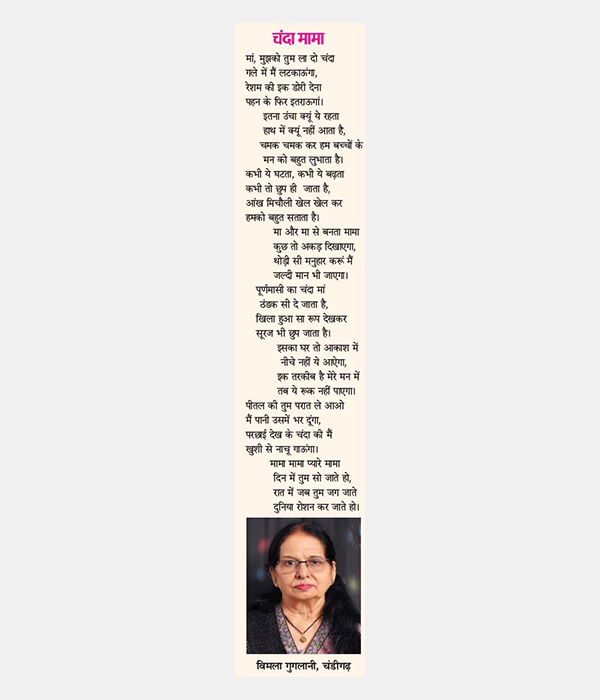 चंदा मामा
मां, मुझको तुम ला दो चंदा
गले में मैं लटकाऊंगा,
रेशम की इक डोरी देना
पहन के फिर इतराऊगां।
इतना उंचा क्यूं ये रहता
हाथ में क्यूं नहीं आता है,
चमक चमक कर हम बच्चों के
मन को बहुत लुभाता है।
कभी ये घटता, कभी ये बढ़ता
कभी तो छुप ही जाता है,
आंख मिचौली खेल खेल कर
हमको बहुत सताता है।
मा और मा से बनता मामा
कुछ तो अकड़ दिखाएगा,
थोड़ी सी मनुहार करूं मैं
जल्दी मान भी जाएगा।
पूर्णमासी का चंदा मां
ठंडक सी दे जाता है,
खिला हुआ सा रूप देखकर
सूरज भी छुप जाता है।
इसका घर तो आकाश में
नीचे नहीं ये आऐगा,
इक तरकीब है मेरे मन में
तब ये रूक नहीं पाएगा।
पीतल की तुम परात ले आओ
मैं पानी उसमें भर दूंगा,
परछाई देख के चंदा की मैं
खुशी से नाचू गाऊंगा।
मामा मामा प्यारे मामा
दिन में तुम सो जाते हो,
रात में जब तुम जग जाते
दुनिया रोशन कर जाते हो।
विमला गुगलानी, चंडीगढ़